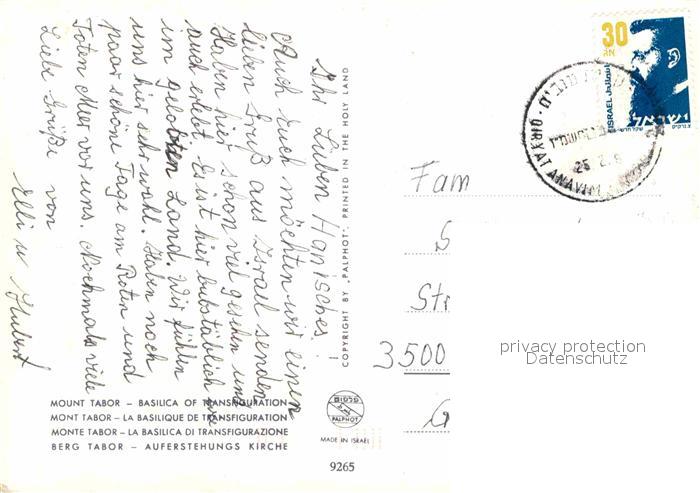 Ihr Lieben Hanisches!
Auch Euch möchten wir einen
lieben Gruß aus Israel senden.
Haben hier schon viel gesehen und
auch erlebt. Es ist hier bubstäblich wie
im gelobten Land. Wir fühlen
uns hier sehr woll. Haben noch
paar schöne Tage am Roten und
Toten Meer vor uns. Nochmals viele
Liebe Grüße von
Elli u Hubert
COPYRIGHT BY „PALPHOT", PRINTED IN THE HOLY LAND
MOUNT TABOR – BASILICA OF TRANSFIGURATION
MONT TABOR – LA BASILIQUE DE TRANSFIGURATION
MONTE TABOR – LA BASILICA DI TRANSFIGURAZIONE
BERG TABOR – AUFERSTEHUNGS KIRCHE
פלפוט
PALPHOT
MADE IN ISRAEL
9265
30
אג
ISRAEL اسرائيل
ישראל
QIRYAT ANAVIM
25.2.8
Fam
S
Str
3500
privacy protection
Datenschutz